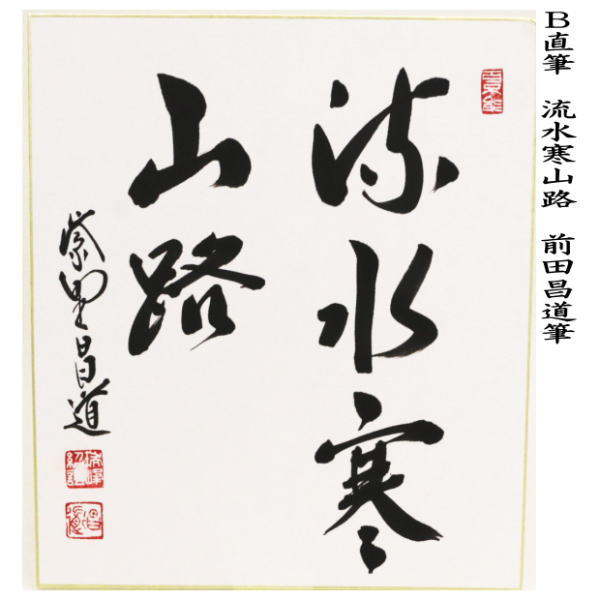 B直筆 流水寒山路 前田昌道筆
流水寒
山路
紫野昌道